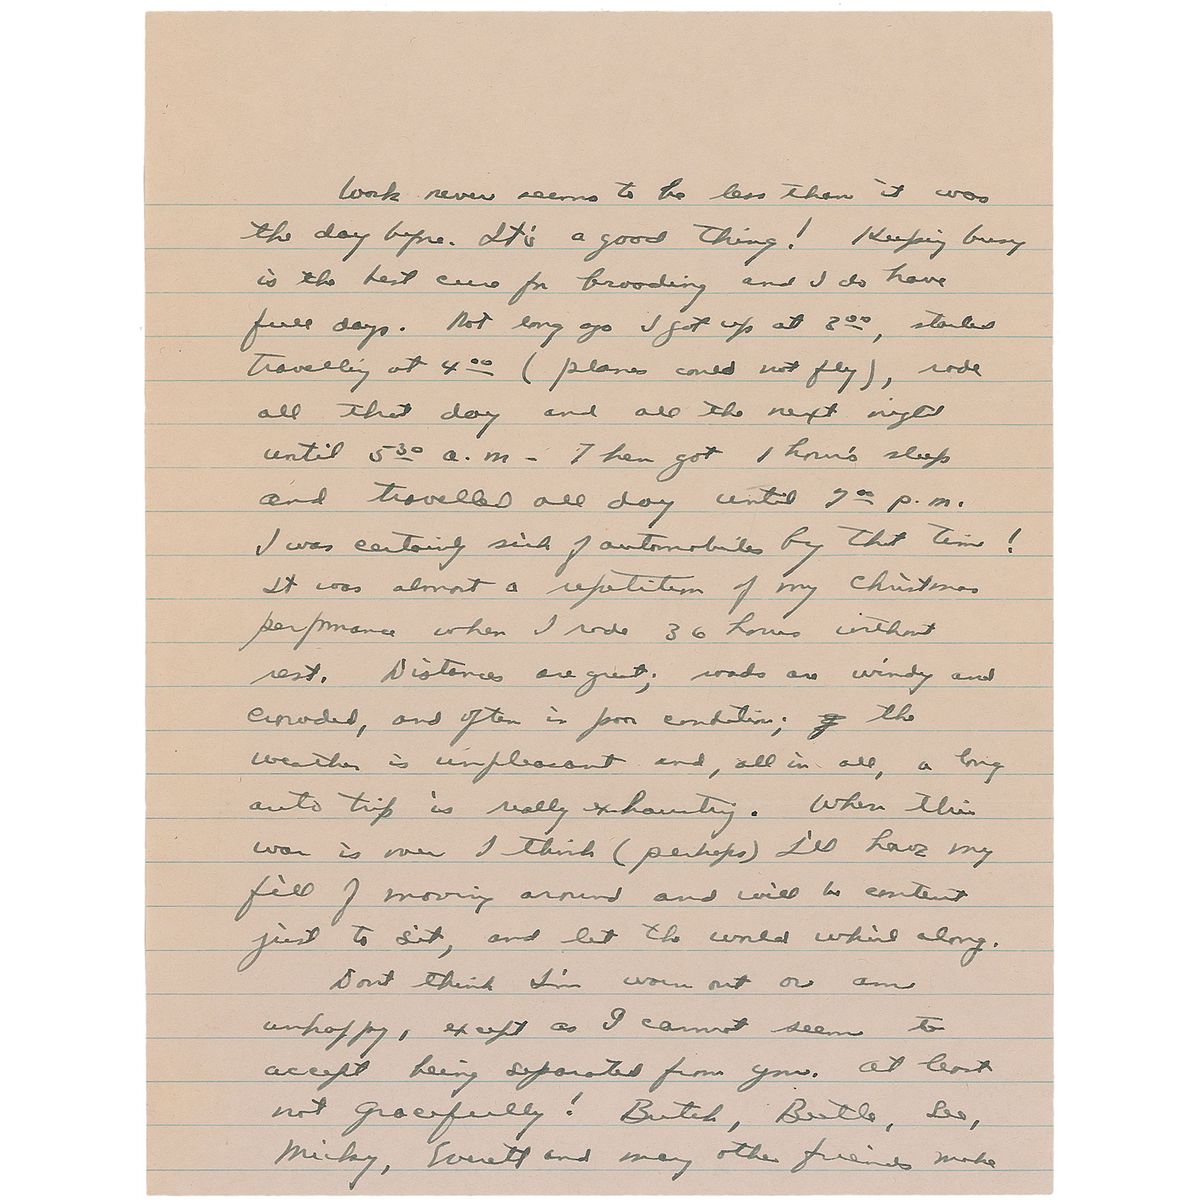 Work never seems to be less than it was
the day before. It's a good thing! Keeping busy
is the best cure for brooding and I do have
full days. Not long ago I got up at 3 00, started
travelling at 4 00 (planes could not fly), rode
all that day and all the next night
until 5 30 a.m - Then got 1 hour's sleep
and travelled all day until 7 00 p.m.
I was certainly sick of automobiles by that time!
It was almost a repetition of my Christmas
performance when I rode 36 hours without
rest. Distances are great; roads are windy and
crowded, and often in poor condition; the
weather is unpleasant and, all in all, a long
auto trip is really exhausting. When this
war is over I think (perhaps) I'll have my
fill of moving around and will be content
just to sit, and let the world whirl along.
Don't think I'm worn out or am
unhappy, except as I cannot seem to
accept being separated from you. At least
not gracefully! Butch, Beetle, Lee,
Micky, Everett and many other friends make